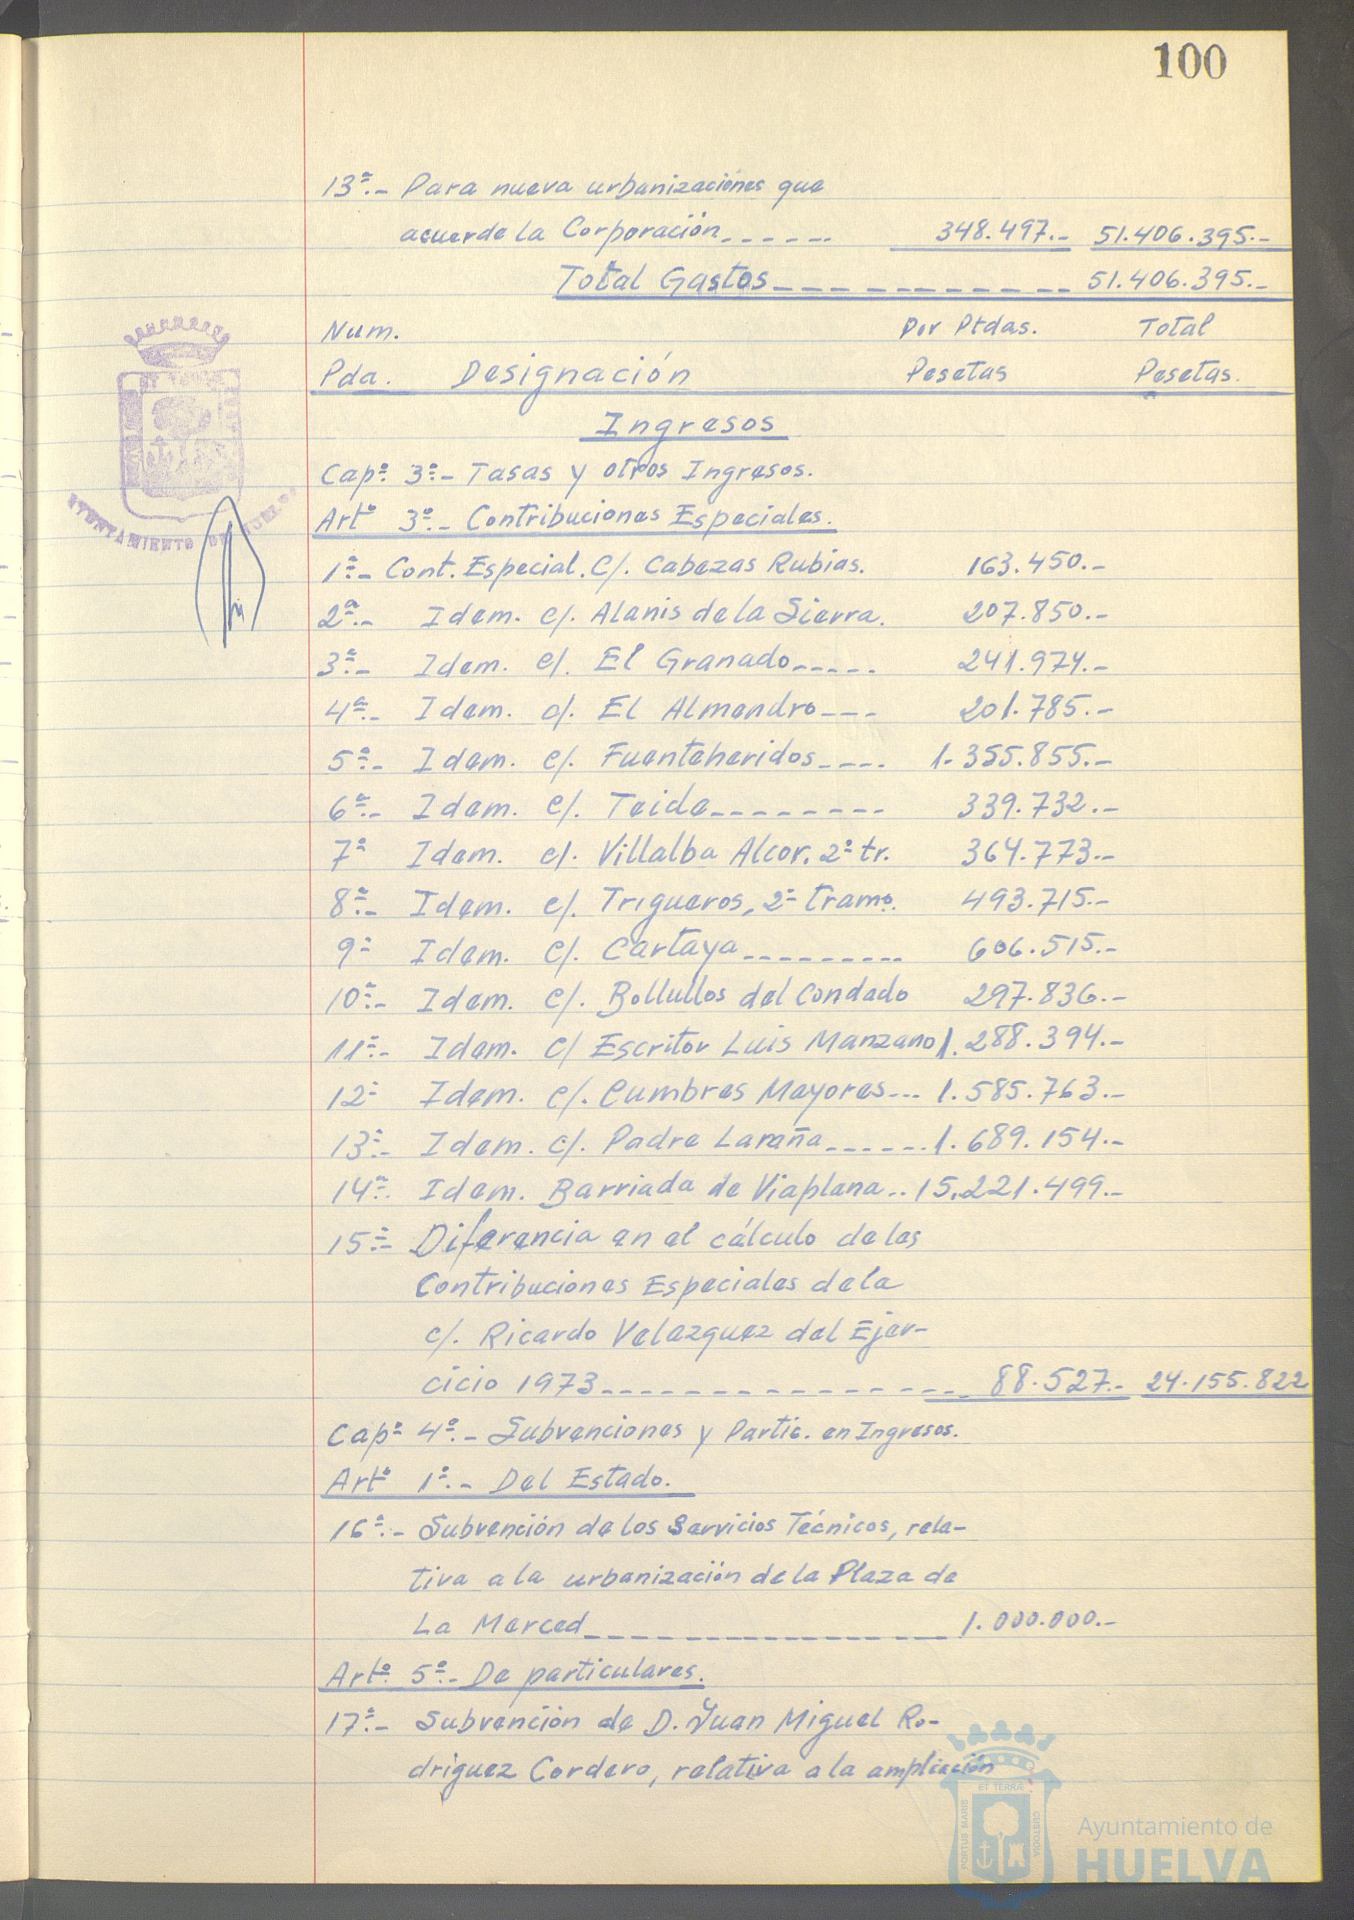 100
13ª.- Para nueva urbanizaciónes que
acuerde la Corporación------ 348.497.- 51.406.395.-
Total Gastos------------ 51.406.395.-
Num. Por Ptdas. Total
Pda. Designación Pesetas Pesetas.
Ingresos
Capº 3º.- Tasas y otros Ingresos.
Artº 3º.- Contribuciones Especiales.
1ª.- Cont. Especial. C/. Cabezas Rubias. 163.450.-
2ª.- Idem. c/. Alanis de la Sierra. 207.850.-
3ª.- Idem. c/. El Granado----- 241.974.-
4ª.- Idem. c/. El Almendro--- 201.785.-
5ª.- Idem. c/. Fuenteheridos---- 1.355.855.-
6ª.- Idem. c/. Teide-------- 339.732.-
7ª Idem. c/. Villalba Alcor. 2º tr. 364.773.-
8ª.- Idem. c/. Trigueros, 2º tramo. 493.715.-
9ª Idem. c/. Cartaya--------- 606.515.-
10ª.- Idem. c/. Bollullos del Condado 297.836.-
11ª.- Idem. c/ Escritor Luis Manzano 1.288.394.-
12ª Idem. c/. Cumbres Mayores--- 1.585.763.-
13ª.- Idem. c/. Padre Laraña------ 1.689.154.-
14ª. Idem. Barriada de Viaplana.. 15.221.499.-
15ª.- Diferencia en el cálculo de las
Contribuciones Especiales de la
c/. Ricardo Velazquez del Ejer-
cicio 1973---------------- 88.527.- 24.155.822
Capº 4º.- Subvenciones y Partic. en Ingresos.
Artº 1º.- Del Estado.
16ª.- Subvención de los Servicios Técnicos, rela-
tiva a la urbanización de la Plaza de
La Merced---------------- 1.000.000.-
Artº. 5º.- De particulares.
17ª.- Subvención de D. Juan Miguel Ro-
driguez Cordero, relativa a la ampliación
AYUNTAMIENTO DE HUELVA
PORTUS MARIS
ET TERRÆ
CUSTODIA
Ayuntamiento de
HUELVA